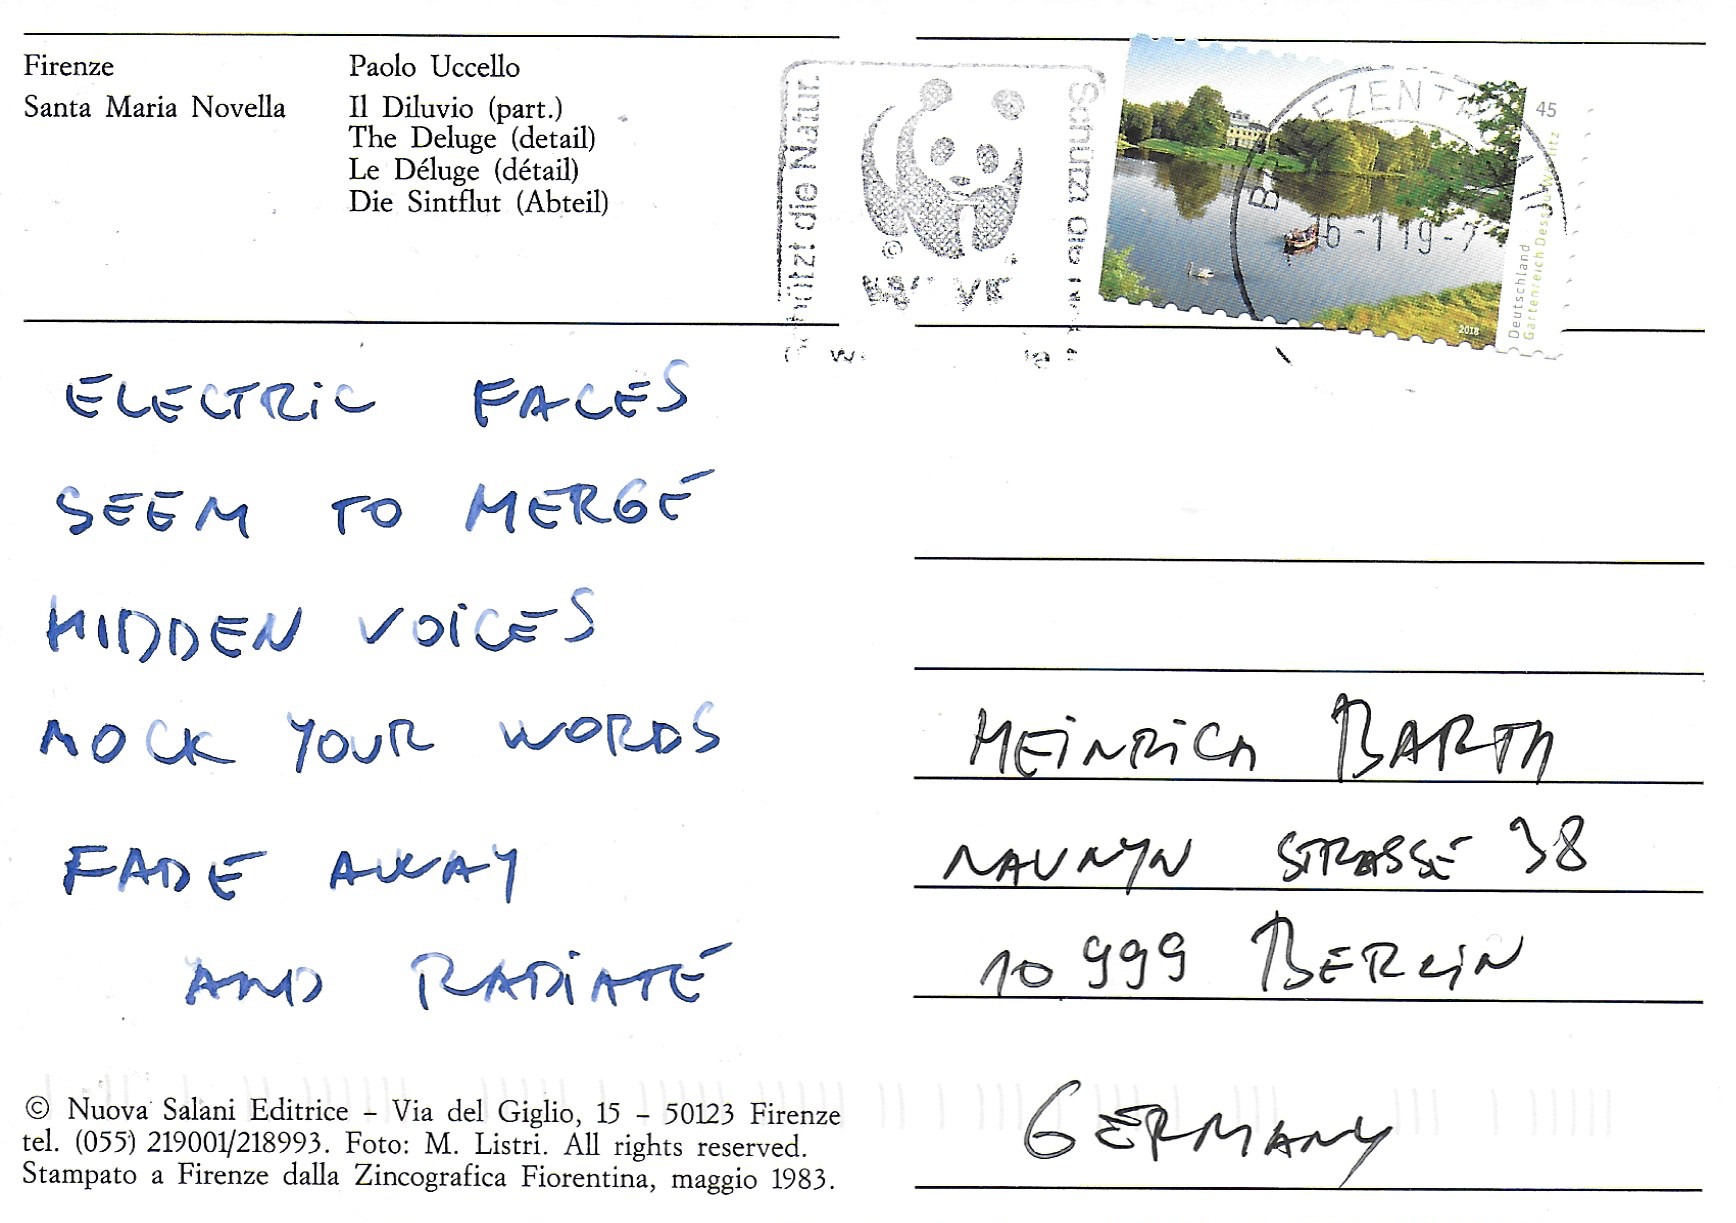 Firenze
Santa Maria Novella
Paolo Uccello
Il Diluvio (part.)
The Deluge (detail)
Le Déluge (détail)
Die Sintflut (Abteil)
die Natur
©
45
Deutschland
Gartenreich
2018
16-1 19-
ELECTRIC FACES
SEEM TO MERGE
HIDDEN VOICES
MOCK YOUR WORDS
FADE AWAY
AND RADIATE
HEINRICH BARTH
NAUNYN STRASSE 38
10999 BERLIN
GERMANY
© Nuova Salani Editrice – Via del Giglio, 15 – 50123 Firenze
tel. (055) 219001/218993. Foto: M. Listri. All rights reserved.
Stampato a Firenze dalla Zincografica Fiorentina, maggio 1983.